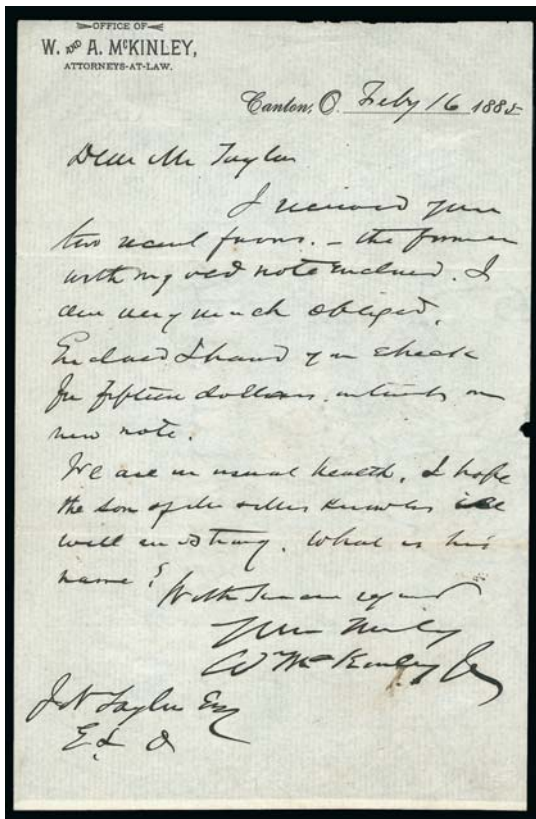 OFFICE OF
W. AND A. McKINLEY,
ATTORNEYS-AT-LAW.
Canton, O. Feby 16 1885
Dear Mr Taylor
I received your
two recent favors. – the former
with my old note enclosed. I
am very much obliged.
Enclosed I hand you check
for fifteen dollars, interest on
new note.
We are in usual health. I hope
the son of the
well and strong. What is his
name?
With sincere regard
Yours truly
W McKinley Jr
J N Taylor Esq
E. L. O